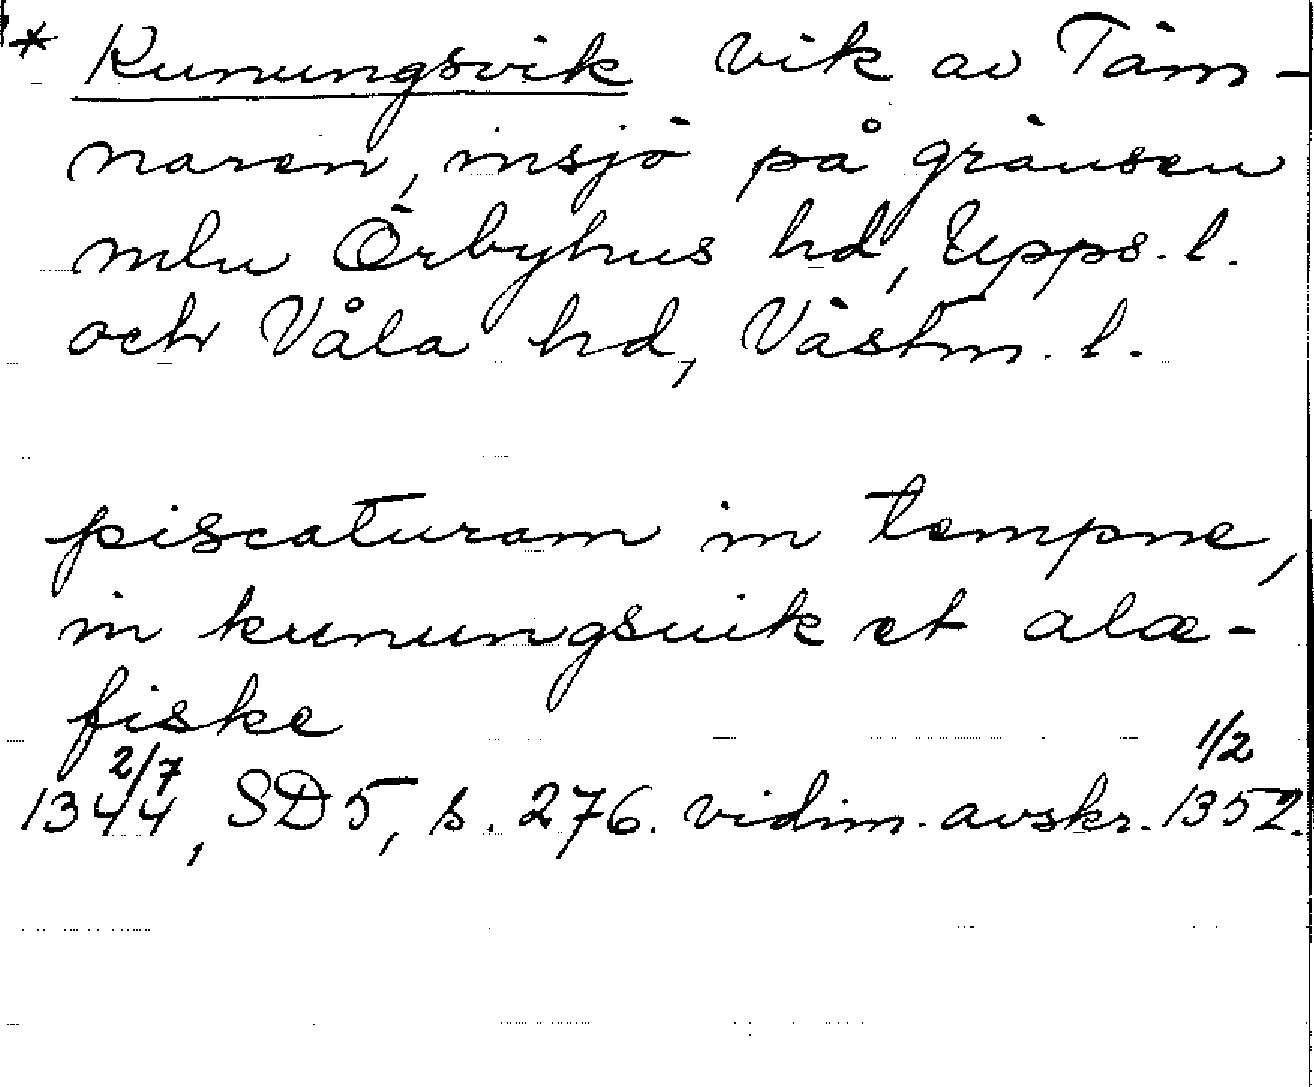 * Kunungsvik vik av Täm-
naren, insjö på gränsen
mln Örbyhus hd, Upps. l.
och Våla hd, Västm. l.
piscaturam in tempne,
in kunungsuik et alæ-
fiske
1344 2/7, SD 5, s. 276. vidim. avskr. 1352 1/2.